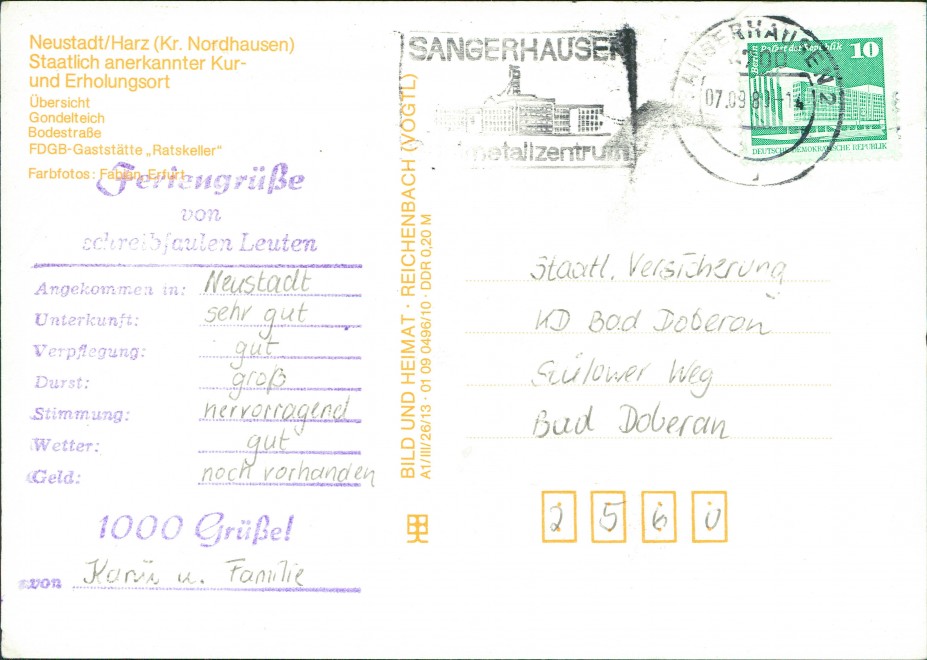 Neustadt/Harz (Kr. Nordhausen)
Staatlich anerkannter Kur-
und Erholungsort
Übersicht
Gondelteich
Bodestraße
FDGB-Gaststätte „Ratskeller"
Farbfotos: Fabian, Erfurt
Feriengrüße
von
schreibfaulen Leuten
Angekommen in: Neustadt
Unterkunft: sehr gut
Verpflegung: gut
Durst: groß
Stimmung: hervorragend
Wetter: gut
Geld: noch vorhanden
1000 Grüße!
von Karin u. Familie
BILD UND HEIMAT · REICHENBACH (VOGTL)
A1/III/26/13 · 01 09 0496/10 · DDR 0,20 M
SANGERHAUSEN
metallzentrum
SANGERHAUSEN 2
4700
07.09.80-14
Berlin, Palast der Republik
10
DEUTSCHE DEMOKRATISCHE REPUBLIK
Staatl. Versicherung
KD Bad Doberan
Sülower Weg
Bad Doberan
2 5 6 0